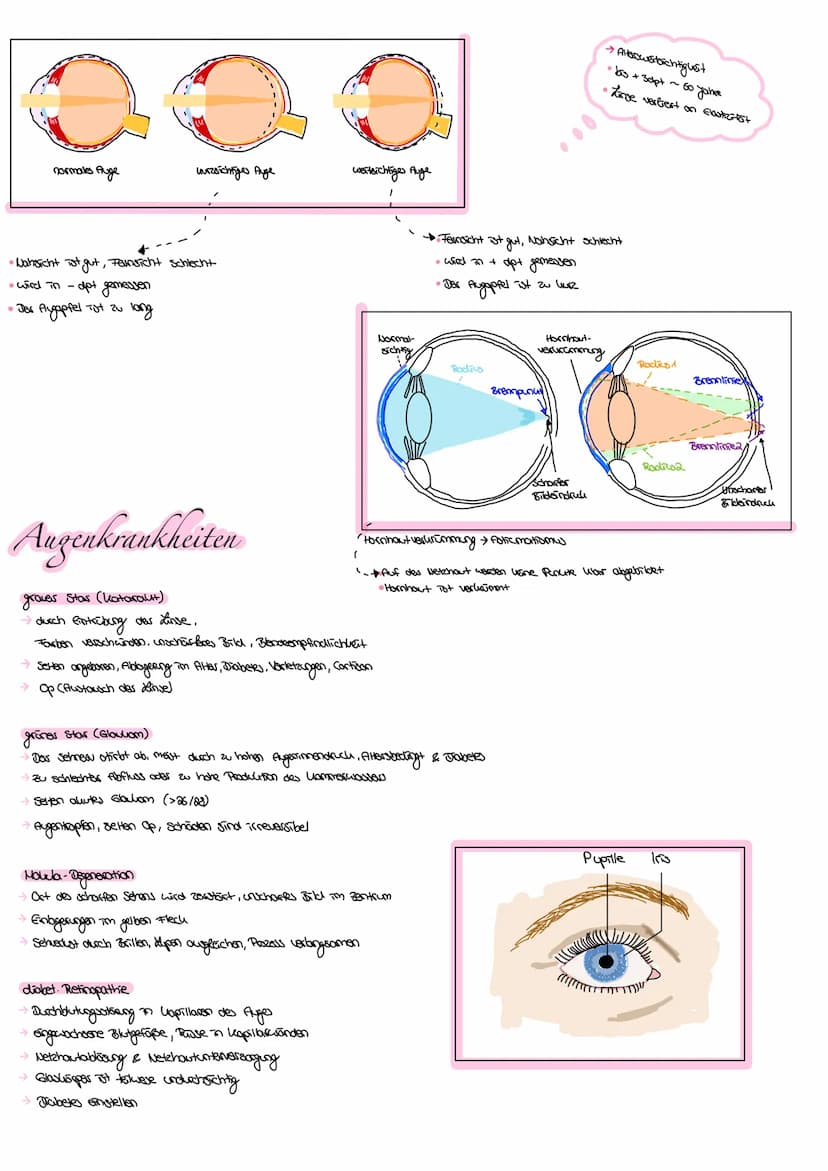 → Altersweitsichtigkeit
• bis + 3dpt ~ 60 Jahre
• Linse verliert an Elastizität
normales Auge
kurzsichtiges Auge
weitsichtiges Auge
• Nahsicht ist gut, Fernsicht schlecht
• wird in - dpt gemessen
• Der Augapfel ist zu lang
• Fernsicht ist gut, Nahsicht schlecht
• wird in + dpt gemessen
• Der Augapfel ist zu kurz
Normal-
sichtig
Radius
Brennpunkt
scharfer
Bildeindruck
Hornhaut-
verkrümmung
Radius1
Brennlinie1
Brennlinie2
Radius2
Unscharfer
Bildeindruck
Hornhautverkrümmung →
Auf der Netzhaut werden keine Punkte klar abgebildet
• Hornhaut ist verkrümmt
Augenkrankheiten
grauer Star (Katarakt)
→ durch Eintrübung der Linse,
Farben verschwinden, unschärferes Bild, Blendeempfindlichkeit
→ Selten angeboren, Ablagerung im Alter, Diabetes, Verletzungen, Cortison
→ Op (Austausch der Linse)
grüner Star (Glaukom)
→ Der Sehnerv stirbt ab, meist durch zu hohen Augeninnendruck, Altersbedingt & Diabetes
→ Zu schlechter Abfluss oder zu hohe Produktion des Kammerwassers
→ Selten akutes Glaukom
→ Augentropfen, selten Op, Schäden sind irreversibel
Makula-Degeneration
→ Ort des scharfen Sehens wird zerstört, unscharfes Bild im Zentrum
→ Einlagerungen im gelben Fleck
→ Sehverlust durch Brillen, Lupen ausgleichen, Prozess verlangsamen
diabet. Retinopathie
→ Durchblutungsstörung in Kapillaren des Auges
→ eingewachsene Blutgefäße, Risse in Kapillarwänden
→ Netzhautablösung & Netzhautunterversorgung
→ Glaskörper ist teilweise undurchsichtig
→ Diabetes einstellen
Pupille
Iris